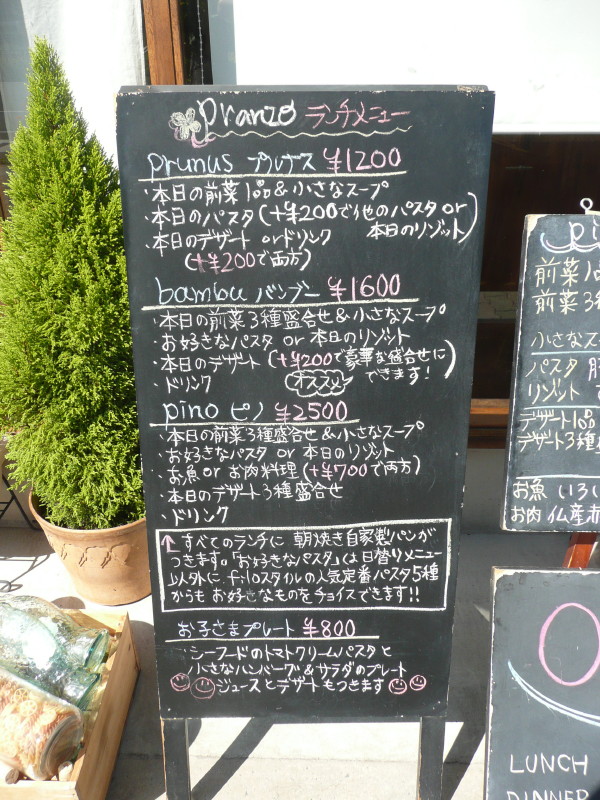 pranzo ランチメニュー
prunus プルナス ¥1200
・本日の前菜1品&小さなスープ
・本日のパスタ(+¥200で他のパスタ or 本日のリゾット)
・本日のデザート or ドリンク
(+¥200で両方)
bambu バンブー ¥1600
・本日の前菜3種盛合せ&小さなスープ
・お好きなパスタ or 本日のリゾット
・本日のデザート(+¥200で豪華な盛合せにできます!)
・ドリンク
オススメ
pino ピノ ¥2500
・本日の前菜3種盛合せ&小さなスープ
・お好きなパスタ or 本日のリゾット
・お魚 or お肉料理(+¥700で両方)
・本日のデザート3種盛合せ
・ドリンク
↑すべてのランチに 朝焼き自家製パンが
つきます。「お好きなパスタ」は日替りメニュー
以外に filoスタイルの人気定番パスタ5種
からも お好きなものをチョイスできます!!
お子さまプレート ¥800
・シーフードのトマトクリームパスタと
小さなハンバーグ&サラダのプレート
ジュースとデザートもつきます
pi
前菜1品
前菜3種
小さなス
パスタ
リゾット
デザート1品
デザート3種
お魚 いろい
お肉 仏産赤
LUNCH
DINNER